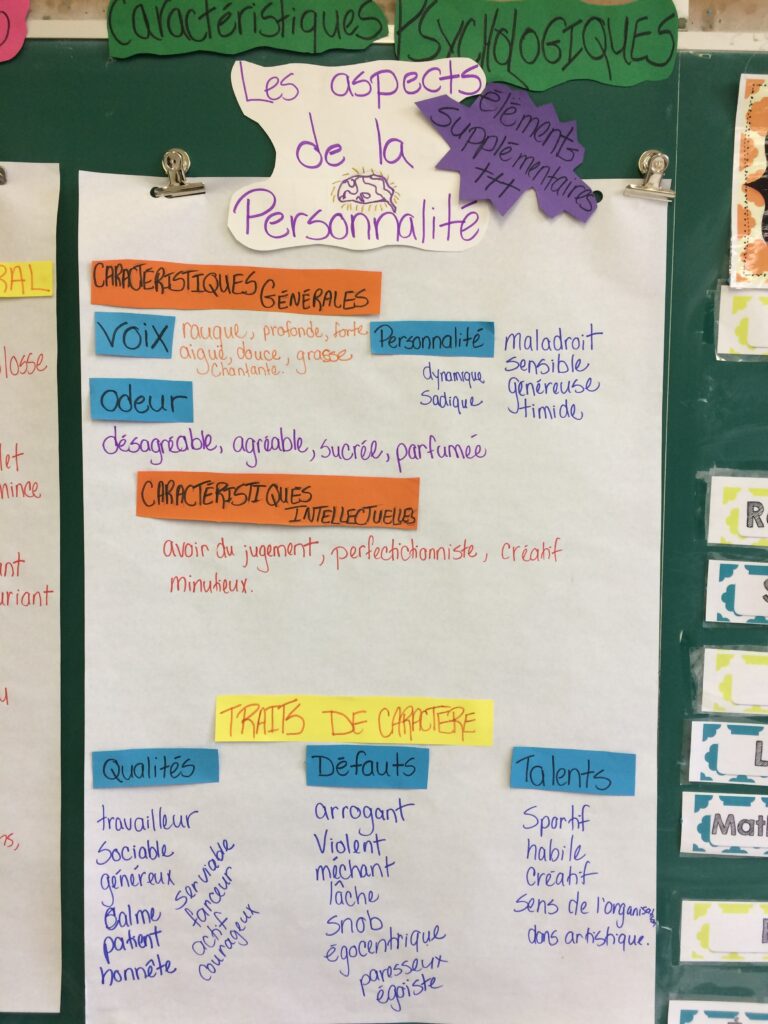 Caractéristiques PSYCHOLOGIQUES
Les aspects
de la
Personnalité
éléments
supplémentaires
+++
CARACTÉRISTIQUES GÉNÉRALES
Voix
rauque, profonde, forte
aiguë, douce, grasse
chantante.
Personnalité
dynamique
sadique
maladroit
sensible
généreuse
timide
odeur
désagréable, agréable, sucrée, parfumée
CARACTÉRISTIQUES
INTELLECTUELLES
avoir du jugement, perfectictionniste, créatif
minutieux.
TRAITS DE CARACTÈRE
Qualités
travailleur
sociable
généreux
calme
patient
honnête
serviable
farceur
actif
courageux
Défauts
arrogant
Violent
méchant
lâche
snob
égocentrique
paresseux
égoïste
Talents
Sportif
habile
Créatif
sens de l'organisa
dons artistique.
RAL
losse
let
mince
ant
uriant
Math